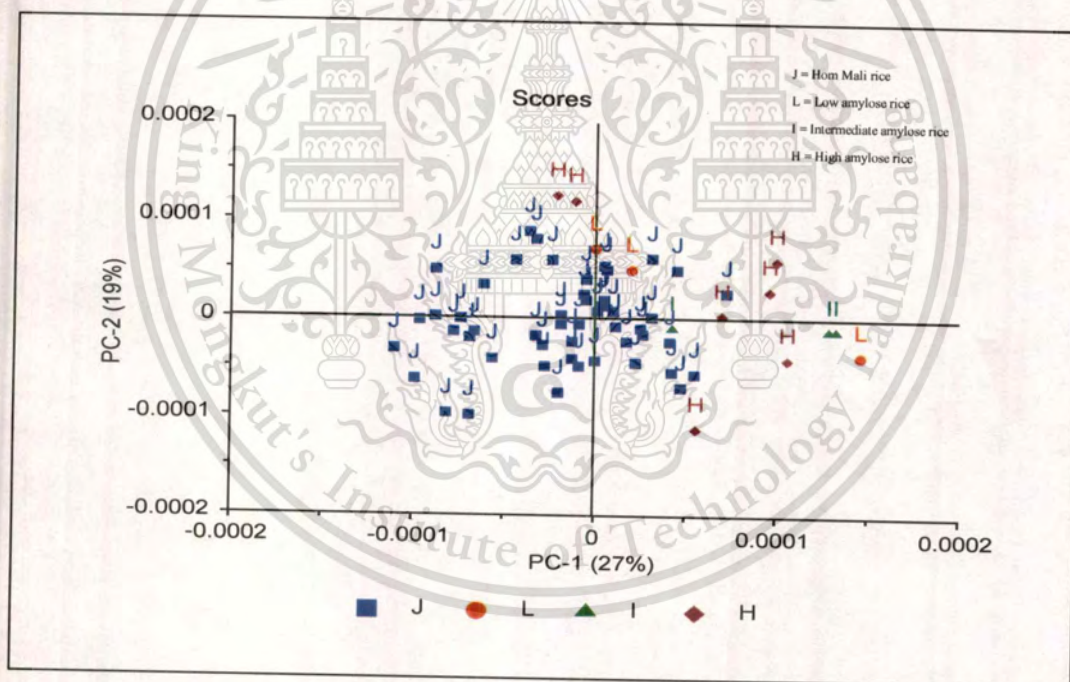 Scores
J = Hom Mali rice
L = Low amylose rice
I = Intermediate amylose rice
H = High amylose rice
0.0002
0.0001
0
-0.0001
-0.0002
PC-2 (19%)
-0.0002
-0.0001
0
0.0001
0.0002
PC-1 (27%)
J L I H
King Mongkut's Institute of Technology Ladkrabang